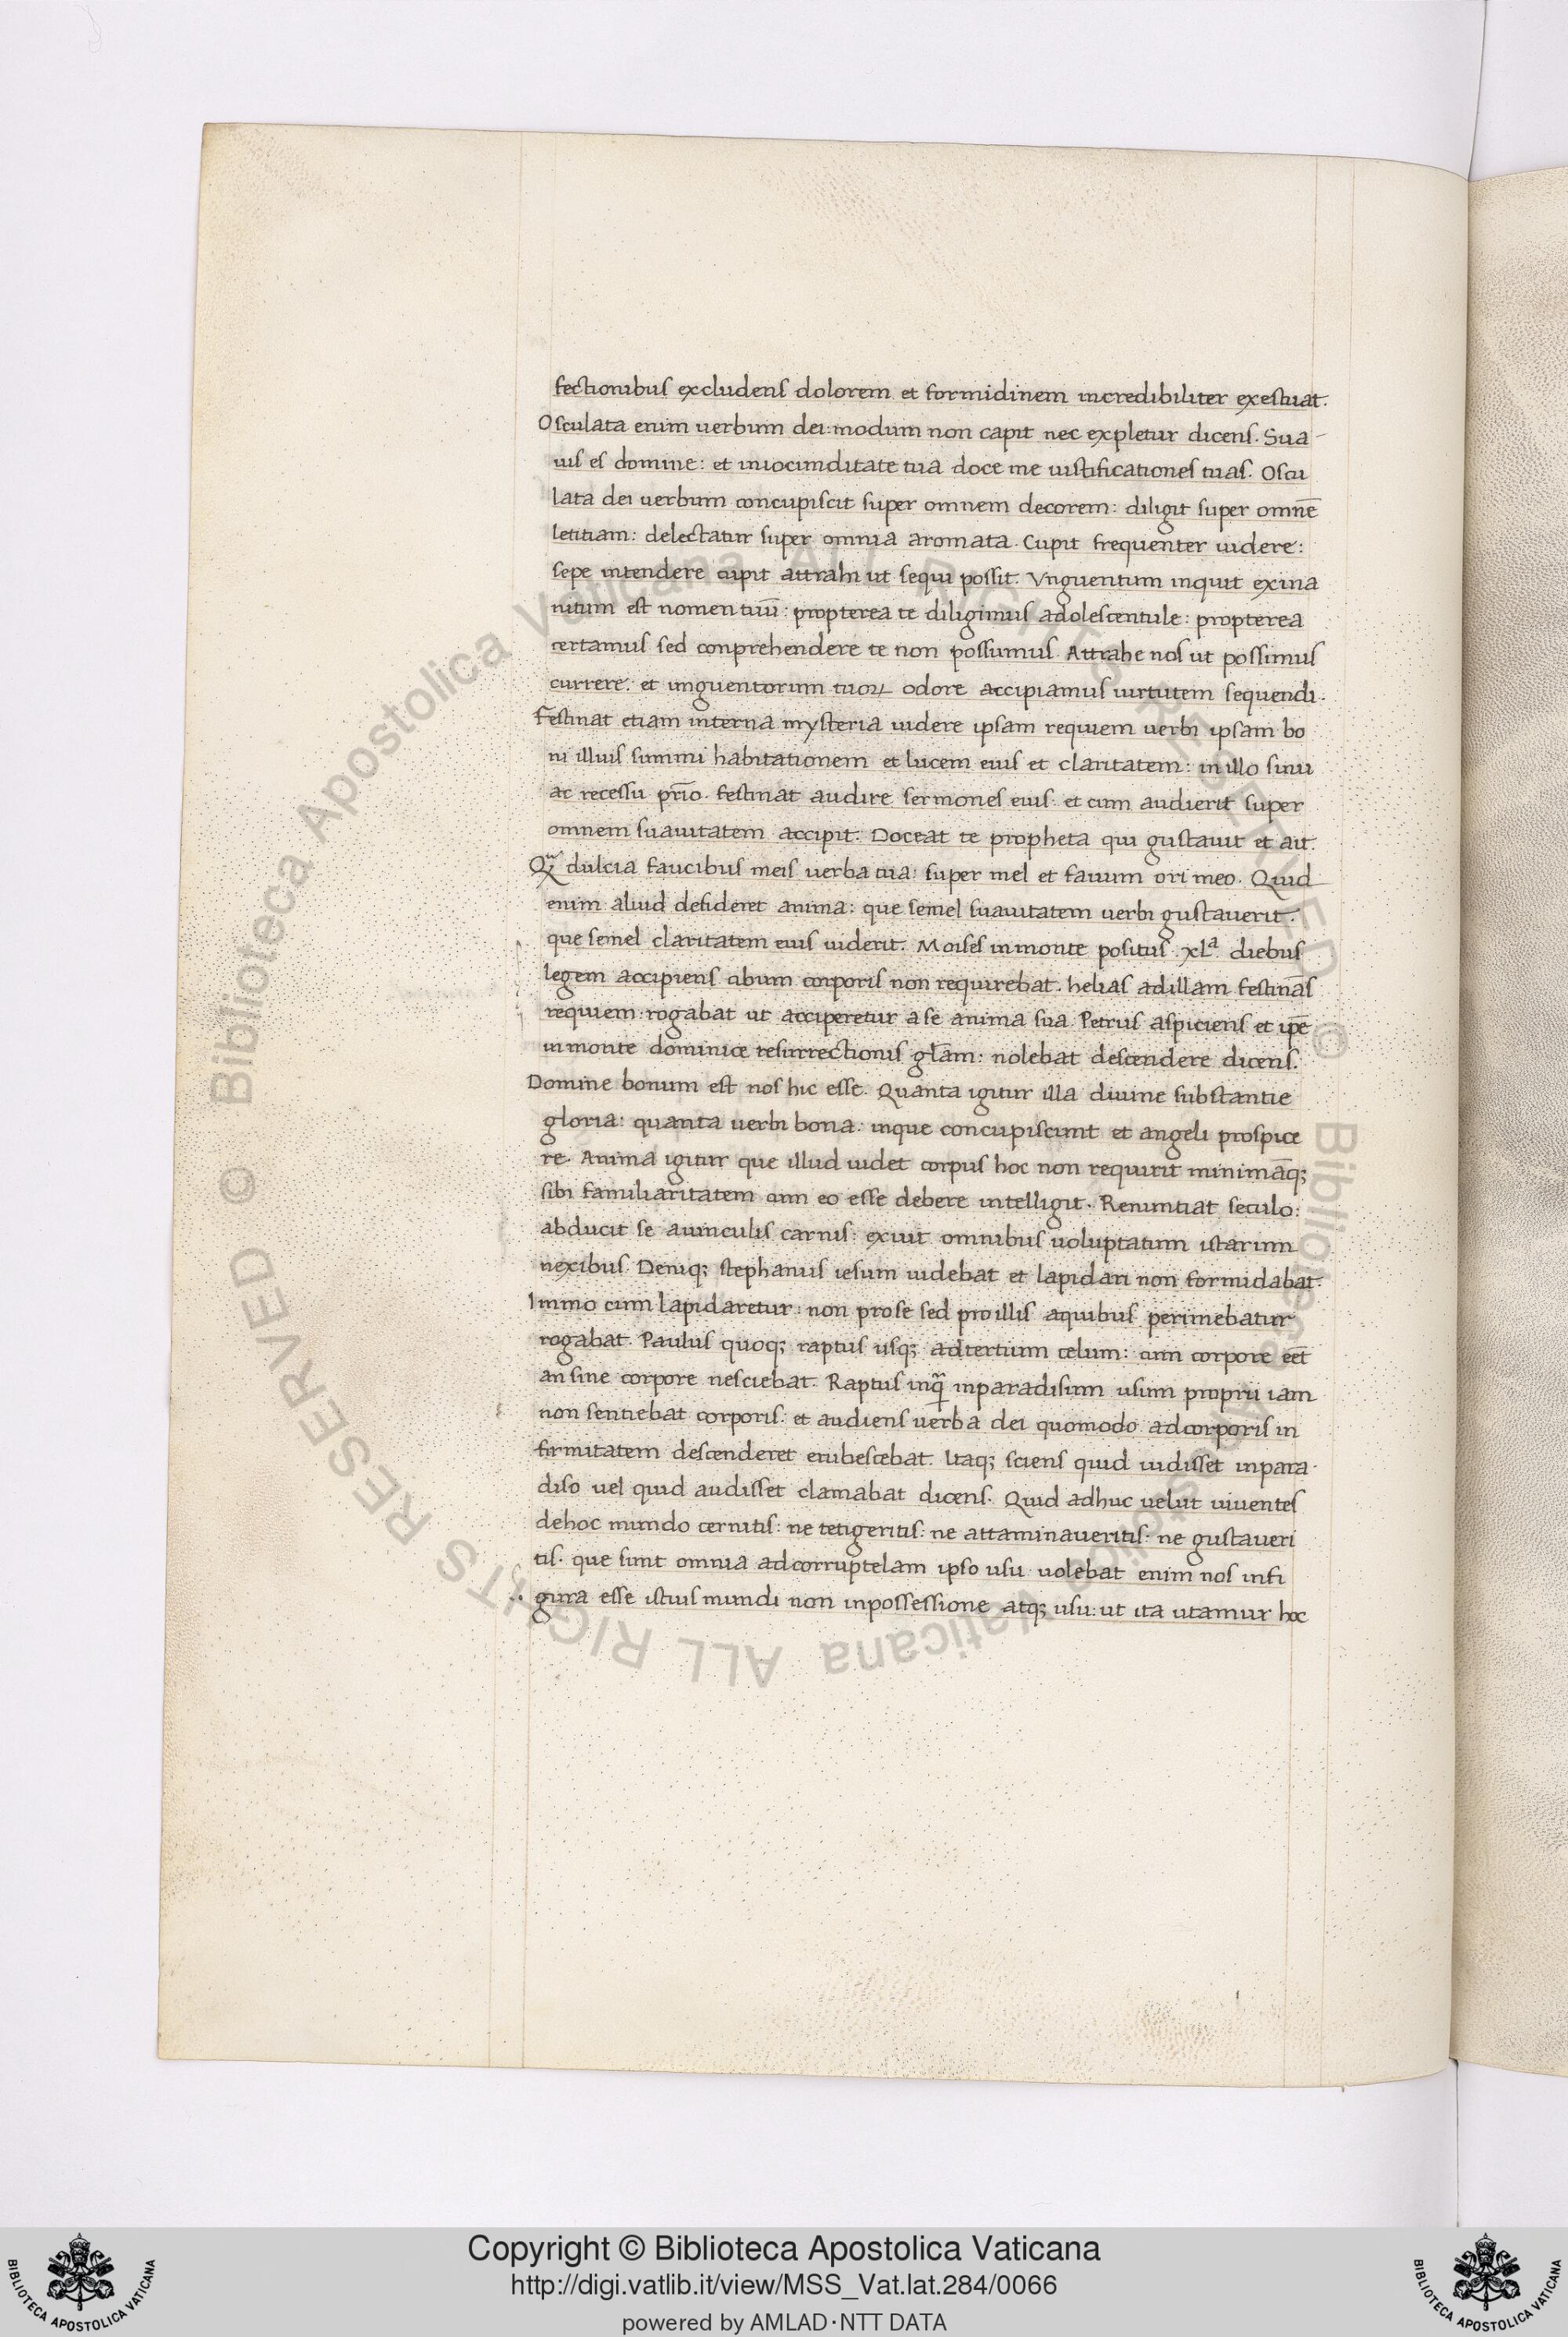 fectionibus excludens dolorem et formidinem incredibiliter exestuat.
Osculata enim uerbum dei: modum non capit nec expletur dicens. Sua-
uis es domine: et in iocunditate tua doce me iustificationes tuas. Oscu
lata dei uerbum concupiscit super omnem decorem: diligit super omnē
letitiam: delectatur super omnia aromata. Cupit frequenter uidere:
sepe intendere cupit attrahi ut sequi possit. Vnguentum inquit exina
nitum est nomen tuū: propterea te diligimus adolescentule: propterea
certamus sed conprehendere te non possumus. Attrahe nos ut possimus
currere: et unguentorum tuoꝝ odore accipiamus uirtutem sequendi.
Festinat etiam interna mysteria uidere ipsam requiem uerbi ipsam bo
ni illius summi habitationem et lucem eius et claritatem: in illo sinu
ac recessu pr̄io. festinat audire sermones eius. et cum audierit super
omnem suauitatem accipit. Doceat te propheta qui gustauit et ait.
dulcia faucibus meis uerba tua: super mel et fauum ori meo. Quid
enim aliud desideret anima: que semel suauitatem uerbi gustauerit:
que semel claritatem eius uiderit. Moises in monte positus xlª diebus
legem accipiens cibum corporis non requirebat. helias ad illam festinās
requiem: rogabat ut acciperetur a se anima sua. Petrus aspiciens et ip̄e
in monte dominice resurrectionis gl̄am: nolebat descendere dicens.
Domine bonum est nos hic esse. Quanta igitur illa diuine substantie
gloria: quanta uerbi bona: inque concupiscunt et angeli prospice
re. Anima igitur que illud uidet corpus hoc non requirit minimāq;
sibi familiaritatem cum eo esse debere intelligit. Renuntiat seculo:
abducit se a uinculis carnis: exiuit omnibus uoluptatum istarum
nexibus. Deniq; stephanus iesum uidebat et lapidari non formidabat.
Immo cum lapidaretur: non pro se sed pro illis a quibus perimebatur
rogabat. Paulus quoq; raptus usq; ad tertium celum: cum corpore eēt
an sine corpore nesciebat. Raptus inq̄ in paradisum usum proprii iam
non sentiebat corporis: et audiens uerba dei quomodo ad corporis in
firmitatem descenderet erubescebat. Itaq; sciens quid uidisset in para-
diso uel quid audisset clamabat dicens. Quid adhuc uelut uiuentes
de hoc mundo cernitis: ne tetigeritis: ne attaminaueritis: ne gustaueri
tis. que sunt omnia ad corruptelam ipso usu uolebat enim nos in fi
gura esse istius mundi non in possessione atq; usu: ut ita utamur hoc
Copyright © Biblioteca Apostolica Vaticana
http://digi.vatlib.it/view/MSS_Vat.lat.284/0066
powered by AMLAD·NTT DATA
BIBLIOTECA APOSTOLICA VATICANA
BIBLIOTECA APOSTOLICA VATICANA
© Biblioteca Apostolica Vaticana ALL RIGHTS RESERVED
© Biblioteca Apostolica Vaticana ALL RIGHTS RESERVED